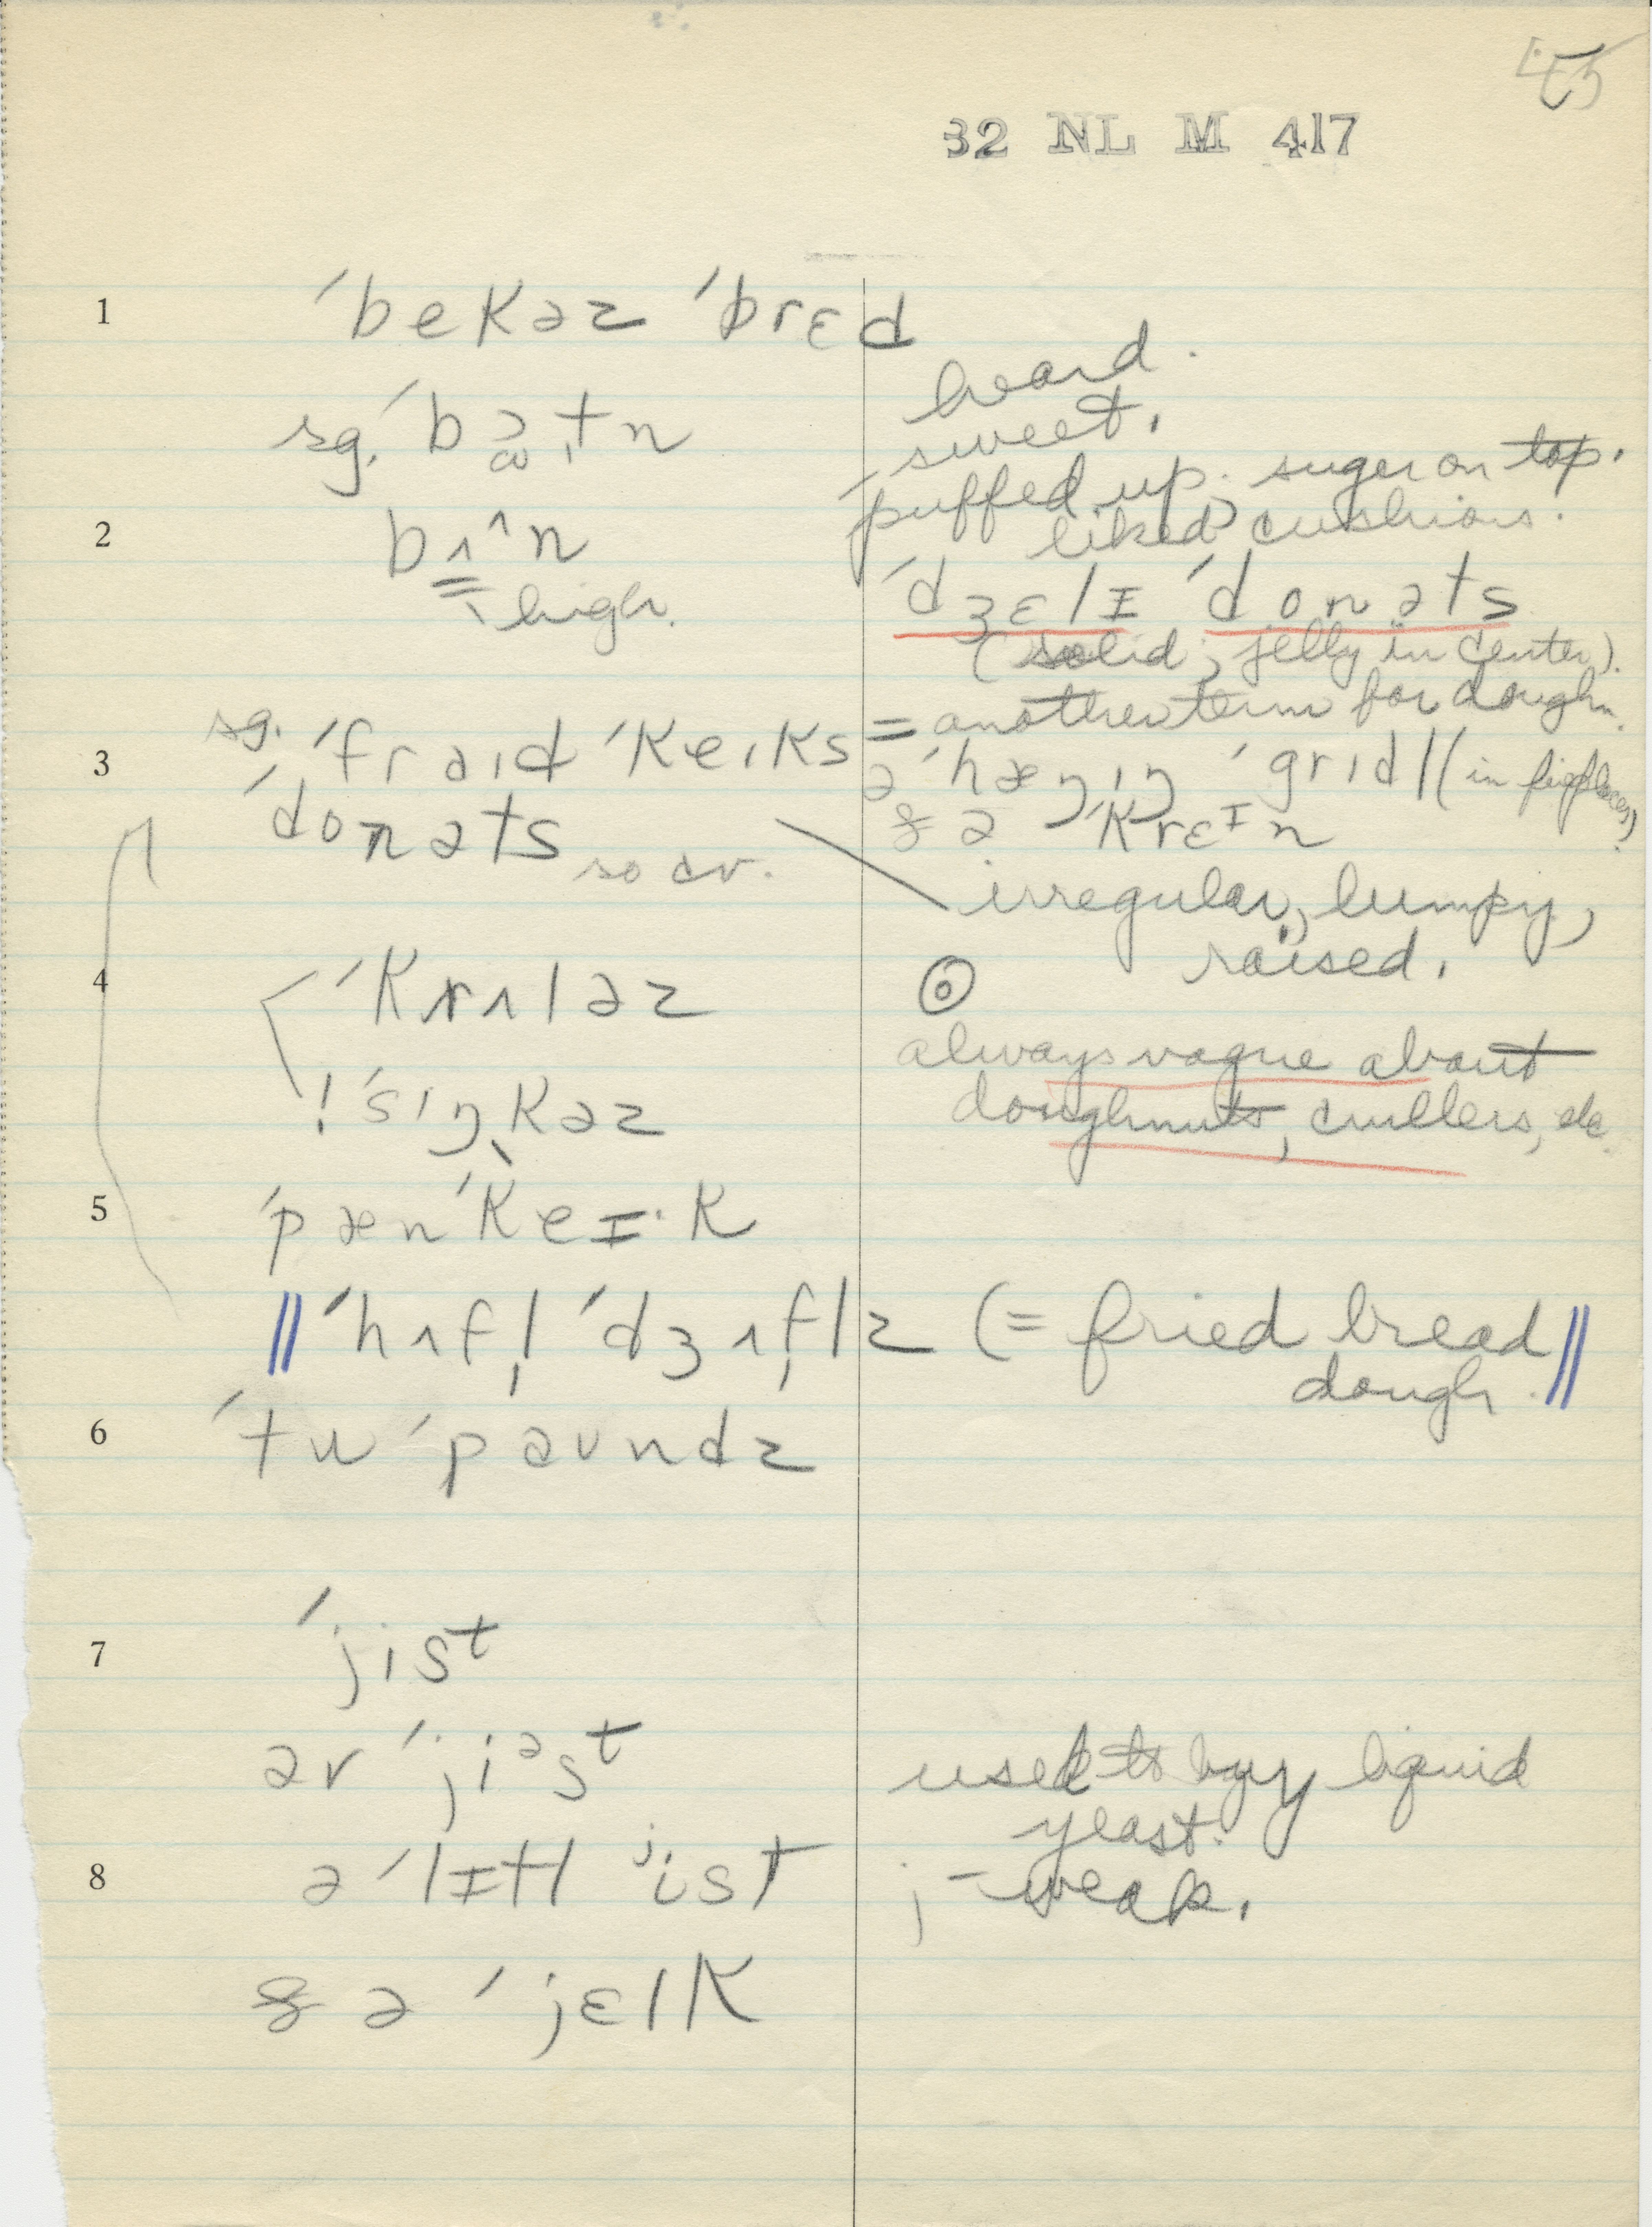 45
32 NL M 417
1 ˈbekəz ˈbrɛd
heard.
sg. ˈbɔtn
sweet.
puffed up. suger on top.
liked cushions.
2 bʌ^n
high.
ˈdʒɛlɪ ˈdonəts
(solid; jelly in center).
sg. ˈfraɪd ˈkeɪks = another term for doughn.
3 ə ˈhæŋɪŋ ˈgrɪdl (in fireplaces)
ˈdonəts so cv.
& ə ˈkrɛɪn
irregular, lumpy,
raised.
4 ˈkrʌləz
always vague about
! ˈsɪŋkəz
doughnuts, crullers, etc.
5 ˈpænˈkeɪ·k
‖ ˈhʌfl̩ ˈdʒʌfl̩z (= fried bread
dough. ‖
6 ˈtu ˈpaʊndz
7 ˈjist
ər ˈjiəst
used to buy liquid
yeast.
8 ə ˈlɪtl ʲist
j – weak.
& ə ˈjɛlk